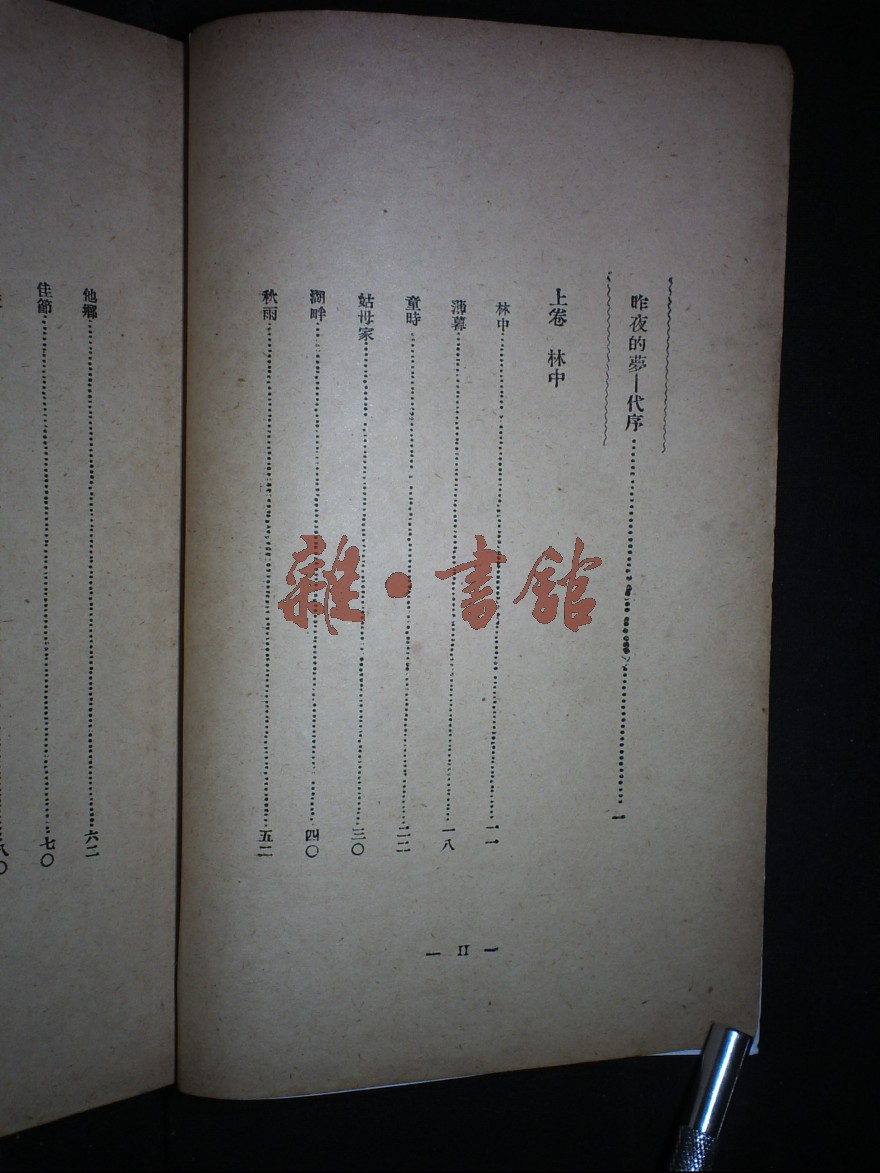 昨夜的夢—代序……一
上卷 林中
林中……一一
薄暮……一八
童時……二二
姑母家……三〇
湖畔……四〇
秋雨……五二
— II —
他鄉……六二
佳節……七〇
八〇
雜·書館